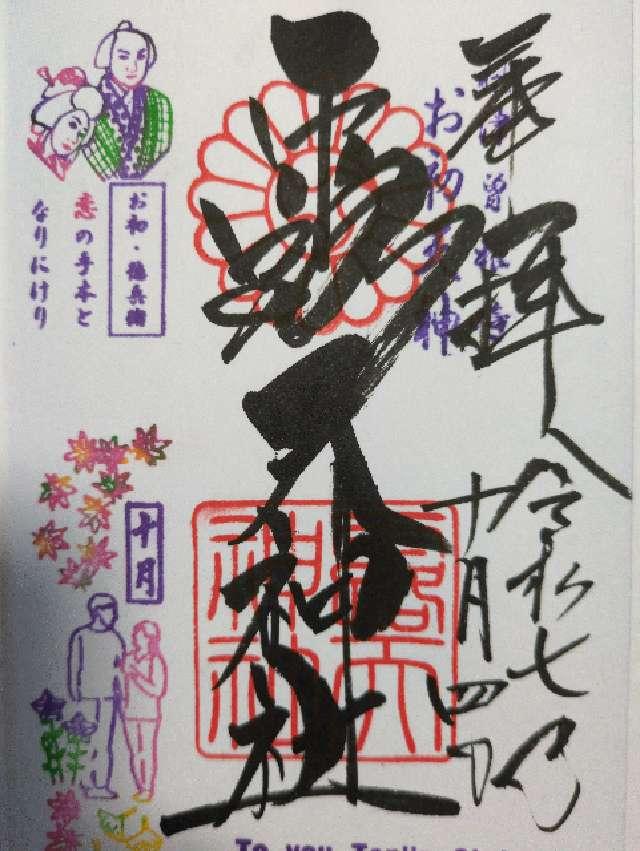 奉拝
令和七年
十月四日
お初天神
露天神社
露天神社
お初・徳兵衛
恋の手本と
なりにけり
十月
To you